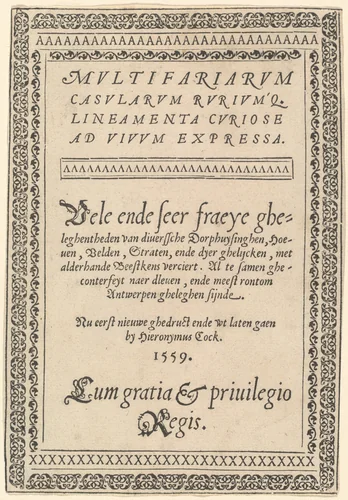 MVLTIFARIARVM
CASVLARVM RVRIVM'Q.
LINEAMENTA CVRIOSE
AD VIVVM EXPRESSA.
Vele ende seer fraeye ghe-
leghentheden van diuerssche Dorphuysinghen, Hoe-
uen, Velden, Straten, ende dyer ghelijcken, met
alderhande Beestkens verciert. Al te samen ghe-
conterfeyt naer dleuen, ende meest rontom
Antwerpen gheleghen sijnde.
Nu eerst nieuwe ghedruct ende wt laten gaen
by Hieronymus Cock.
1559.
Cum gratia & priuilegio
Regis.